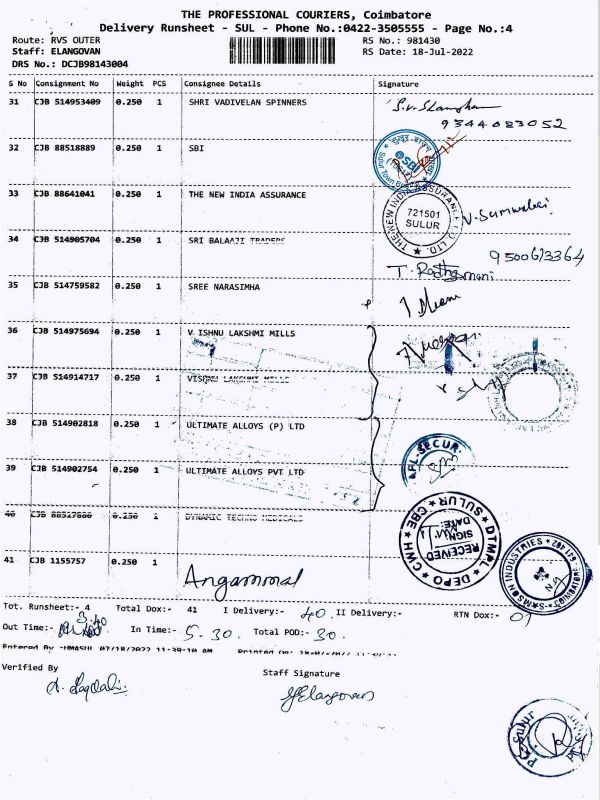 THE PROFESSIONAL COURIERS, Coimbatore
Delivery Runsheet - SUL - Phone No.:0422-3505555 - Page No.:4
Route: RVS OUTER RS No.: 981430
Staff: ELANGOVAN RS Date: 18-Jul-2022
DRS No.: DCJB98143004
S No Consignment No Weight PCS Consignee Details Signature
31 CJB 514953409 0.250 1 SHRI VADIVELAN SPINNERS
9344083052
32 CJB 88518889 0.250 1 SBI
SBI
33 CJB 88641041 0.250 1 THE NEW INDIA ASSURANCE
THE NEW INDIA ASSURANCE CO LTD.
721501
SULUR
34 CJB 514905704 0.250 1 SRI BALAAJI TRADERS
9500613364
35 CJB 514759582 0.250 1 SREE NARASIMHA
36 CJB 514975694 0.250 1 V ISHNU LAKSHMI MILLS
37 CJB 514914717 0.250 1 VISHNU LAKSHMI MILLS
38 CJB 514902818 0.250 1 ULTIMATE ALLOYS (P) LTD
39 CJB 514902754 0.250 1 ULTIMATE ALLOYS PVT LTD
40 CJB 88517886 0.250 1 DYNAMIC TECHNO MEDICALS
DTMPL DEPO CWH SULUR CBE
RECEIVED
SIGN:
DATE:
41 CJB 1155757 0.250 1
Angammal
SAMSON INDUSTRIES
Tot. Runsheet:- 4 Total Dox:- 41 I Delivery:- 40 II Delivery:- RTN Dox:- 01
Out Time:- In Time:- 5.30. Total POD:- 30.
Entered By :UMASUL 07/18/2022 11:39:10 AM Printed On:
Verified By Staff Signature